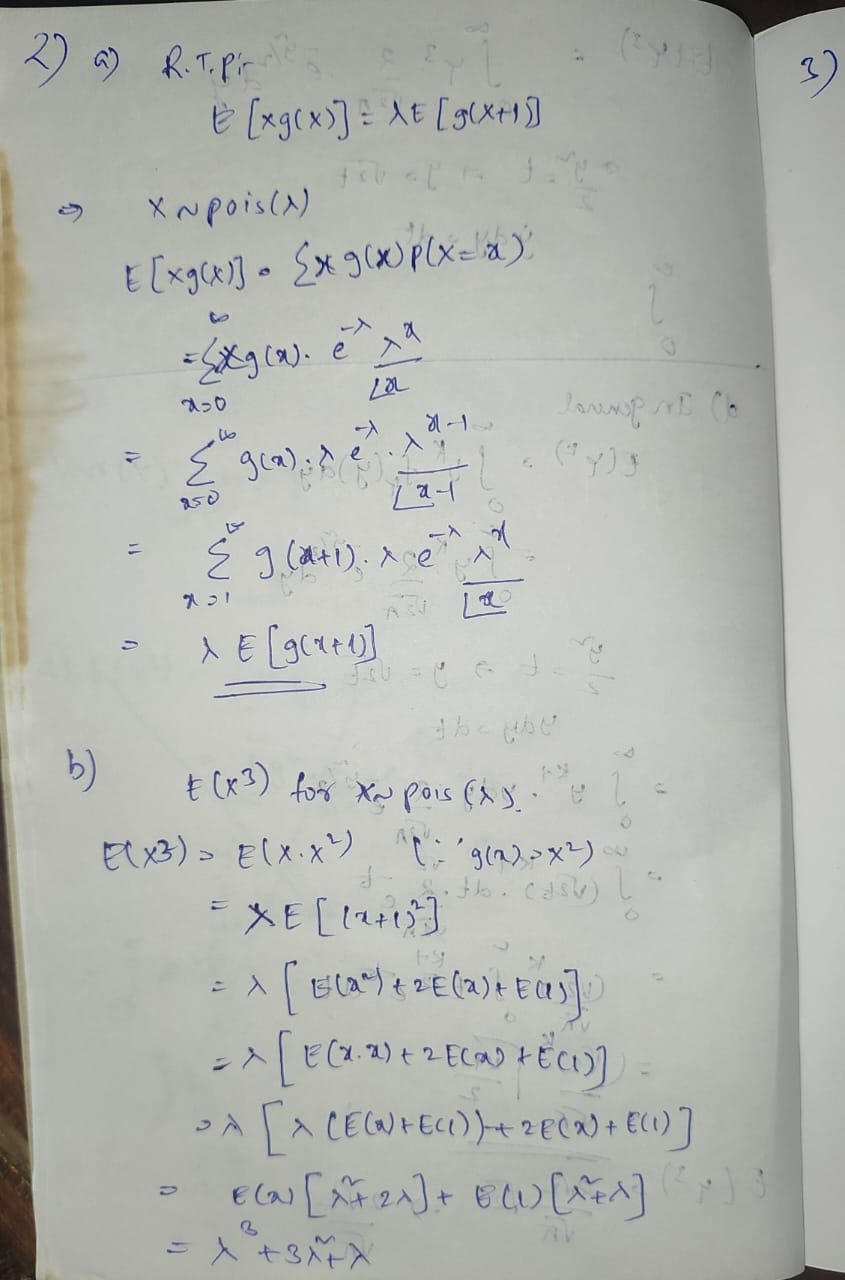 2) a) R.T.P:-
E[xg(x)] = λE[g(x+1)]
⇒ X ~ pois(λ)
E[xg(x)] = Σx g(x) p(X=x)
= Σ_{x=0}^{∞} x g(x). e^{-λ} λ^x / ⌊x
= Σ_{x=0}^{∞} g(x). λ e^{-λ}. λ^{x-1} / ⌊x-1
= Σ_{x=1}^{∞} g(x+1). λ e^{-λ} λ^x / ⌊x
= λ E[g(x+1)]
b) E(x^3) for X ~ pois(λ).
E(x3) = E(x.x^2) (∵ g(x) = x^2)
= λE[(x+1)^2]
= λ[E(x^2) + 2E(x) + E(1)]
= λ[E(x.x) + 2E(x) + E(1)]
= λ[λ(E(x)+E(1)) + 2E(x) + E(1)]
= E(x)[λ^2 + 2λ] + E(1)[λ^2 + λ]
= λ^3 + 3λ^2 + λ
3)